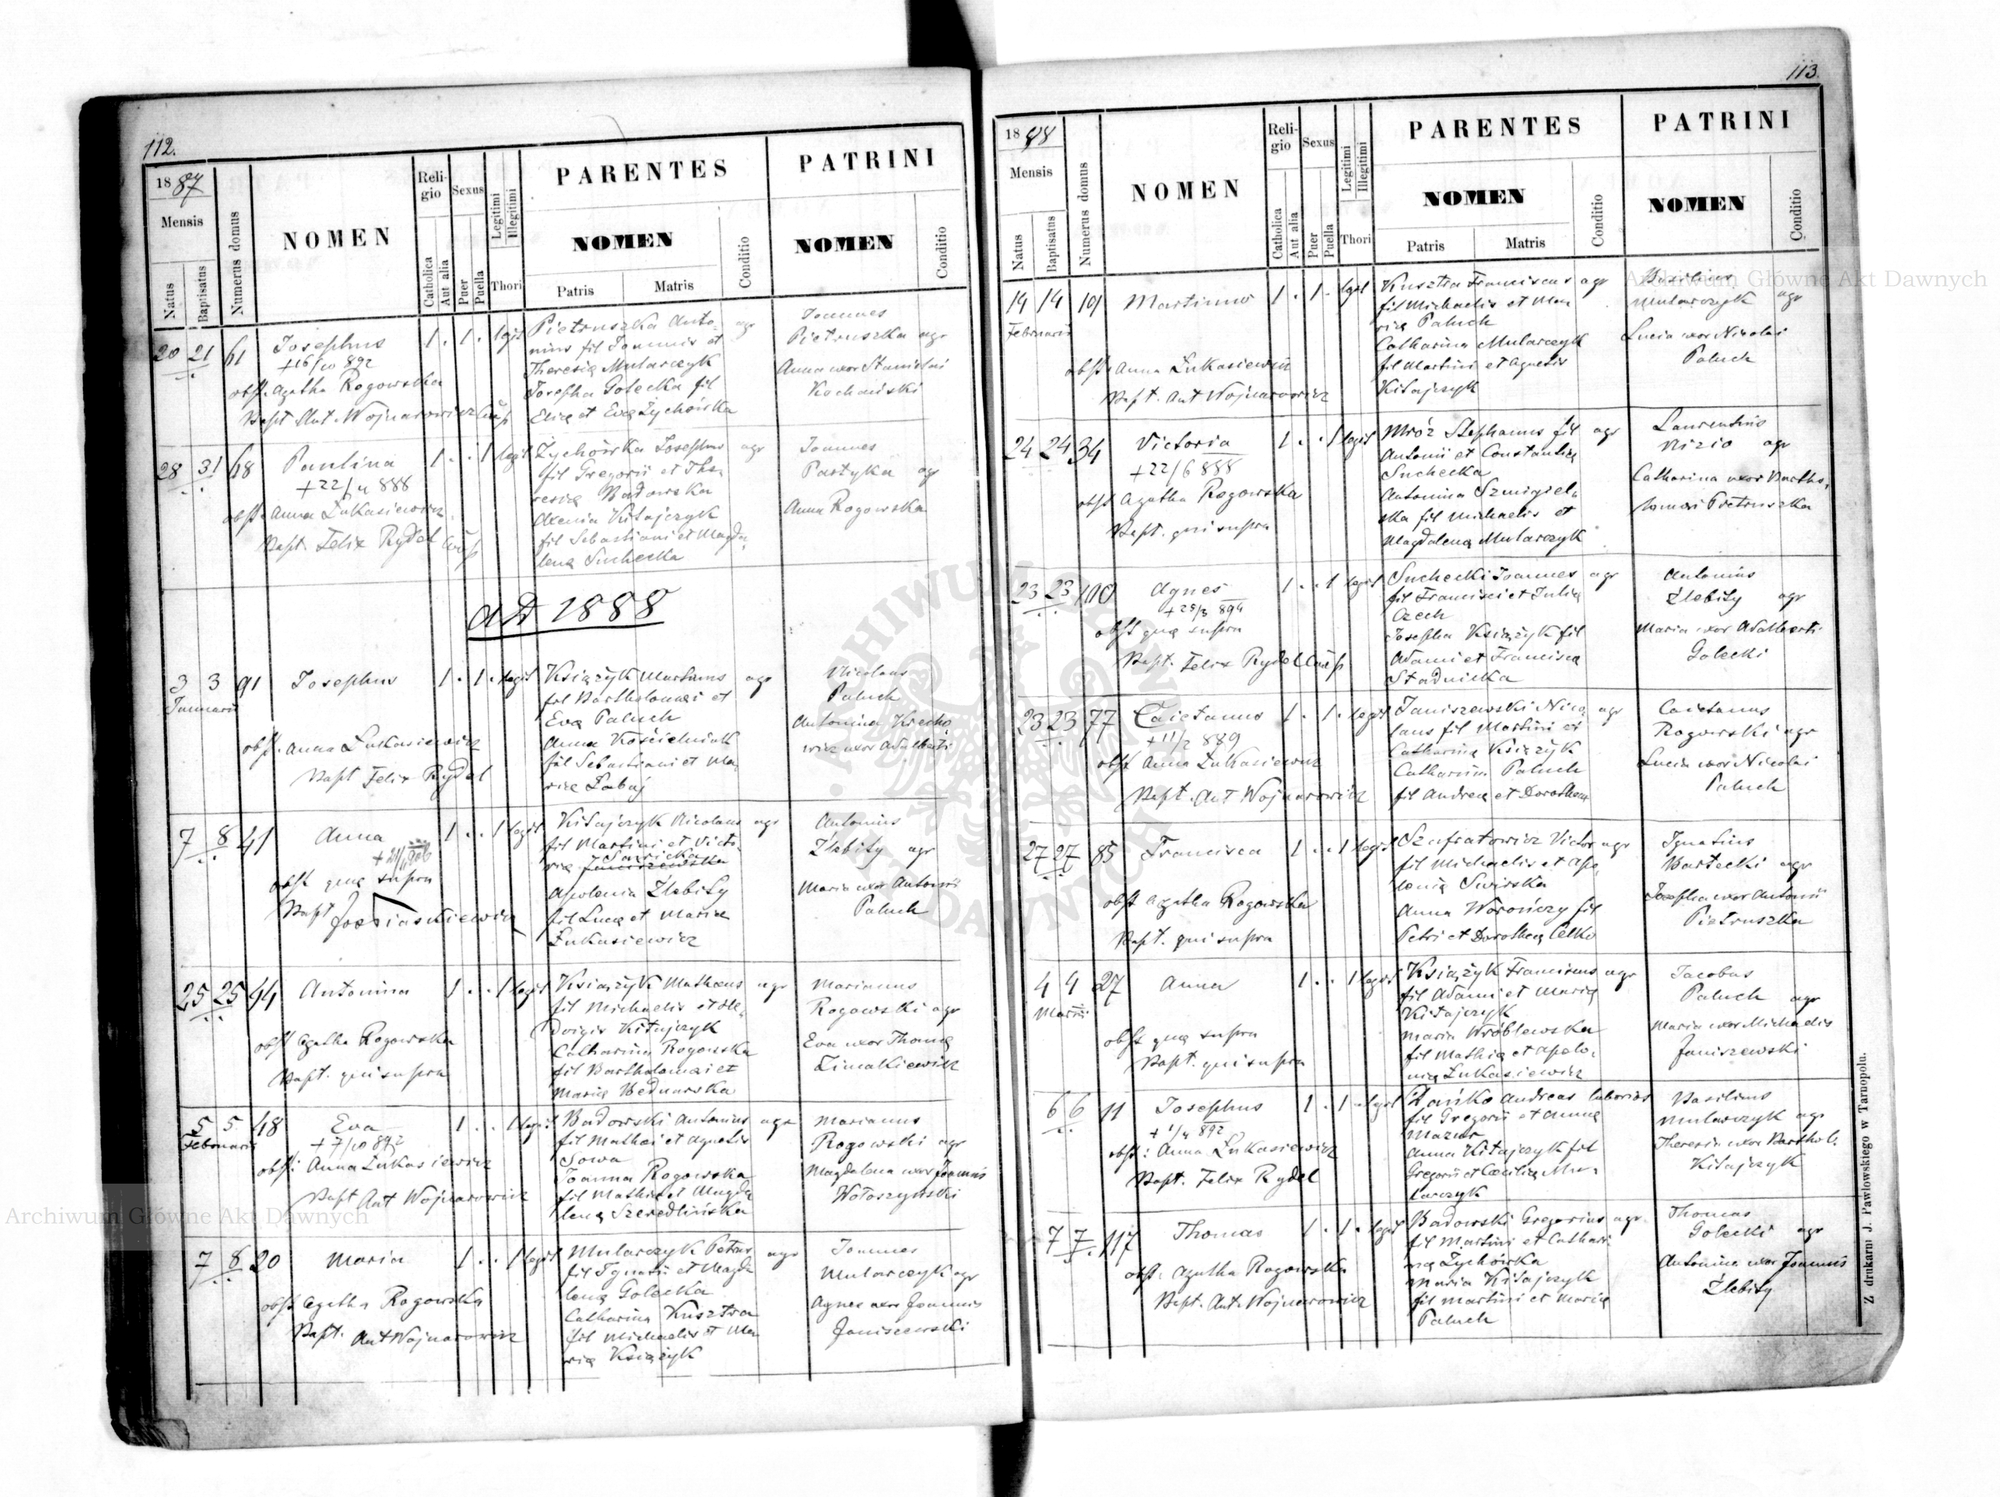 112.
1887
Mensis
Natus
Baptisatus
Numerus domus
NOMEN
Religio
Catholica
Aut alia
Sexus
Puer
Puella
Legitimi
Illegitimi
Thori
PARENTES
NOMEN
Patris
Matris
Conditio
PATRINI
NOMEN
Conditio
20 21 61 Josephus 1 . 1 . legit
+16/10 892
obst. Agatha Rogowska
Bapt. Ant. Wojnarowicz
Pietruszka Anto- agr
nius fil Joannis et
Theresię Mularczyk
Josepha Golecka fil
et Evę Zychórska
Joannes
Pietruszka agr
Anna uxor Stanislai
28 31 68 Paulina 1 . . 1 legit
+22/4 888
obst. Anna Łukasiewicz
Bapt. Felix Rydel
Zychórska Josephus agr
fil Gregorii et The-
resię Badowska
Axenia Kitajczyk
fil Sebastiani et Magda-
lenę Suchecka
Joannes
Partyka agr
Anna Rogowska
AD 1888
3 3 91 Josephus 1 . 1 . legit
Januarii
obst. Anna Łukasiewicz
Bapt Felix Rydel
Książyk Martinus agr
fil Bartholomaei et
Evę Paluch
Anna Kościelniak
fil Sebastiani et Ma-
rię
Nicolaus
Paluch
Antonina
uxor Adalberti
7 8 41 Anna 1 . . 1 legit
obst quę supra
Bapt
Kitajczyk Nicolaus agr
fil Martini et Victo-
rię
Apolonia Zlebity
fil Lucę et Marię
Łukasiewicz
Antonius
Zlebity agr
Maria uxor Antonii
Paluch
25 25 94 Antonina 1 . . 1 legit
obst Agatha Rogowska
Bapt. qui supra
Książyk Mathaeus agr
fil Michaelis et He-
dvigis Kitajczyk
Catharina Rogowska
fil Bartholomaei et
Marię Bednarska
Marianus
Rogowski agr
Eva uxor Thomę
5 5 48 Eva 1 . . 1 legit
Februarii
+7/10 892
obst: Anna Łukasiewicz
Bapt Ant Wojnarowicz
Badowski Antonius agr
fil Mathei et Agnetis
Sowa
Joanna Rogowska
fil Mathię et Magda
lenę
Marianus
Rogowski agr
Magdalena uxor Joannis
Wołoszyński
7 8 20 Maria 1 . . 1 legit
obst Agatha Rogowska
Bapt. Ant Wojnarowicz
Mularczyk Petrus agr
fil Ignatii et Magda
lenę Golecka
Catharina Kusztra
fil Michaelis et Ma
rię Książyk
Joannes
Mularczyk agr
Agnes uxor Joannis
Janiszewski
113.
1888
Mensis
Natus
Baptisatus
Numerus domus
NOMEN
Religio
Catholica
Aut alia
Sexus
Puer
Puella
Legitimi
Illegitimi
Thori
PARENTES
NOMEN
Patris
Matris
Conditio
PATRINI
NOMEN
Conditio
14 14 101 Martinus 1 . 1 . legit
Februarii
obst: Anna Łukasiewicz
Bapt. Ant Wojnarowicz
Kusztra Franciscus agr
fil Michaelis et Ma
rię Paluch
Catharina Mularczyk
fil Martini et Agnetis
Kitajczyk
Basilius
Mularczyk agr
Lucia uxor Nicolai
Paluch
24 24 34 Victoria 1 . . 1 legit
+22/6 888
obst Agatha Rogowska
Bapt. qui supra
Mróz Stephanus fil agr
Antonii et Constantię
Suchecka
Antonina Szmigiel-
ska fil Michaelis et
Magdalenę Mularczyk
Laurentius
Nizio agr
Catharina uxor Bartho-
lomaei Pietruszka
23 23 100 Agnes 1 . . 1 legit
+25/3 894
obst quę supra
Bapt. Felix Rydel
Suchecki Joannes agr
fil Francisci et Julię
Czech
Josepha Książyk fil
Adami et Franciscę
Stadnicka
Antonius
Zlebity agr
Maria uxor Adalberti
Golecki
23 23 77 Caietanus 1 . 1 . legit
+11/2 889
obst Anna Łukasiewicz
Bapt. Ant Wojnarowicz
Janiszewski Nico agr
laus fil Martini et
Catharinę Książyk
Catharina Paluch
fil Andreę et Dorotheę
Caietanus
Rogowski agr
Lucia uxor Nicolai
Paluch
27 27 85 Francisca 1 . . 1 legit
obst Agatha Rogowska
Bapt. qui supra
Szufratowicz Victor agr
fil Michaelis et Apo-
lonię Swirska
Anna Worończy fil
Petri et Dorotheę Celko
Ignatius
Bartecki agr
Josepha uxor Antonii
Pietruszka
4 4 27 Anna 1 . . 1 legit
Martii
obst quę supra
Bapt. qui supra
Książyk Franciscus agr
fil Adami et Marię
Kitajczyk
Maria Wróblewska
fil Mathię et Apolo-
nię Łukasiewicz
Jacobus
Paluch agr
Maria uxor Michaelis
Janiszewski
6 6 11 Josephus 1 . 1 . legit
+1/4 892
obst: Anna Łukasiewicz
Bapt. Felix Rydel
Andreas
fil Gregorii et Annę
Mazur
Anna Kitajczyk fil
Gregorii et Cęcilię Mu-
larczyk
Basilius
Mularczyk agr
Theresia uxor Barthol.
Kitajczyk
7 7 117 Thomas 1 . 1 . legit
obst: Agatha Rogowska
Bapt. Ant. Wojnarowicz
Badowski Gregorius agr.
fil Martini et Cathari
nę Zychórska
Maria Kitajczyk
fil Martini et Marię
Paluch
Thomas
Golecki agr
Antonina uxor Joannis
Zlebity
Z drukarni J. Pawłowskiego w Tarnopolu.
Archiwum Główne Akt Dawnych
Archiwum Główne Akt Dawnych
ARCHIWUM GŁÓWNE AKT DAWNYCH